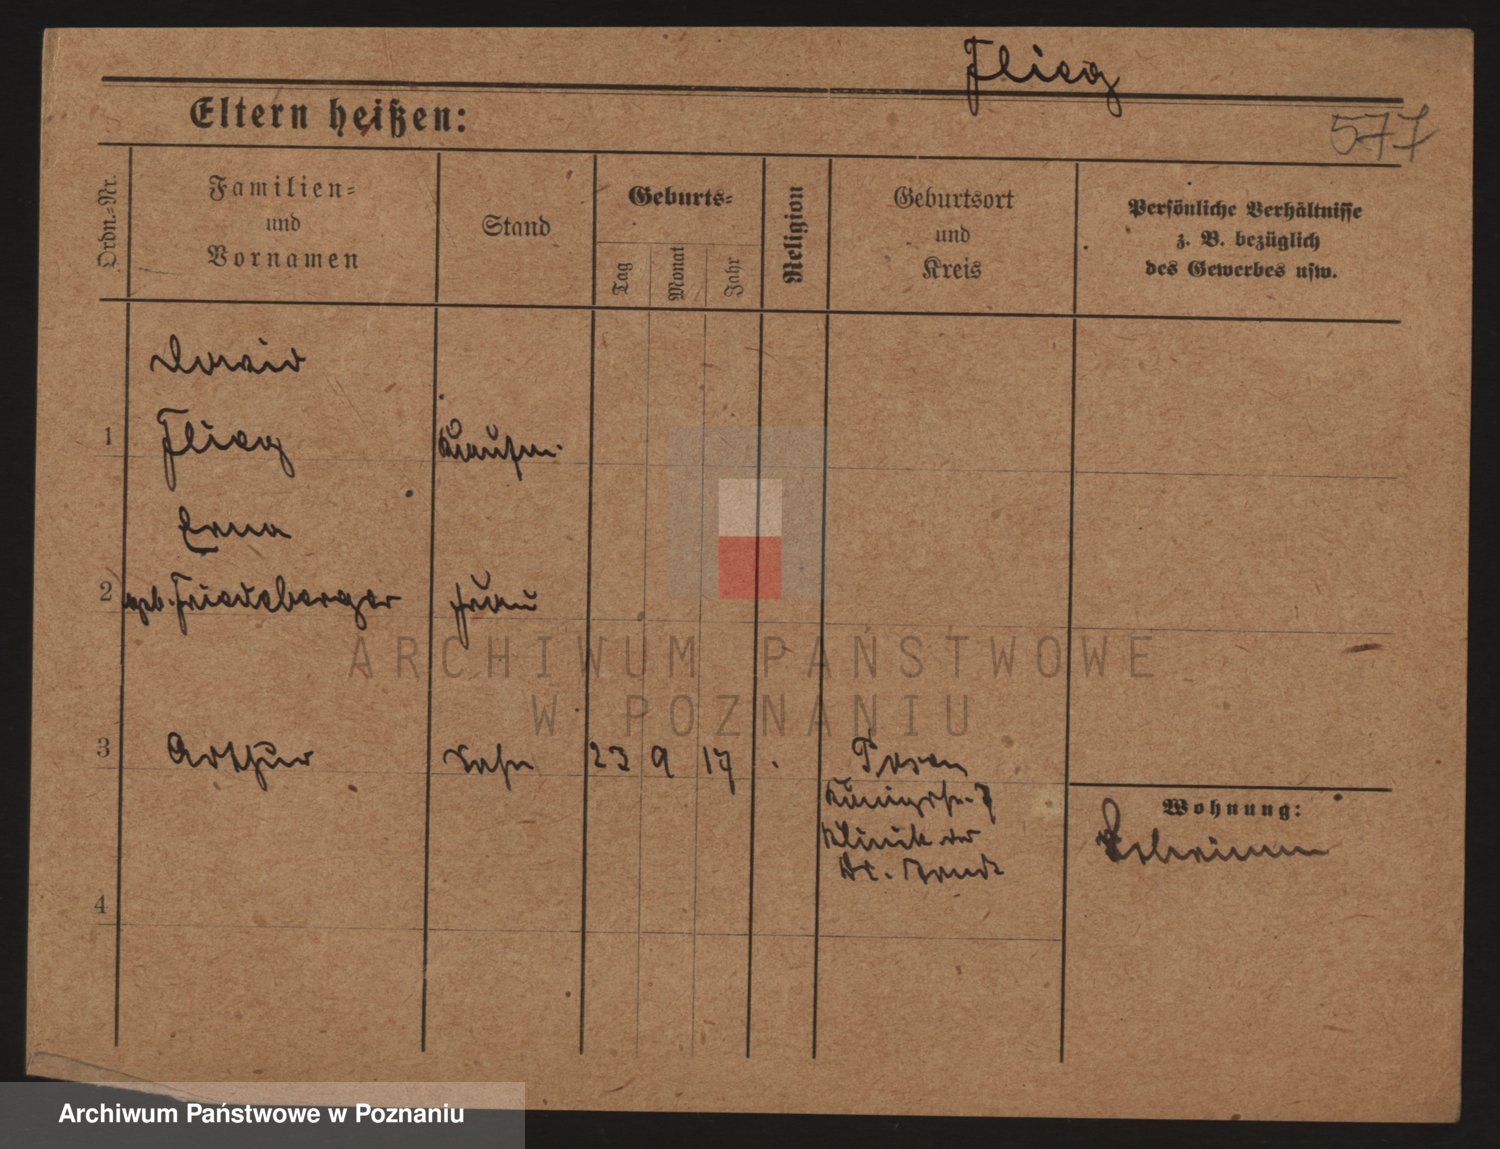 Flieg
Eltern heißen:
577
Ordn.=Nr.
Familien=
und
Vornamen
Stand
Geburts=
Tag
Monat
Jahr
Religion
Geburtsort
und
Kreis
Persönliche Verhältnisse
z. B. bezüglich
des Gewerbes usw.
David
1 Flieg Kaufm.
Erna
2 geb. Friedeberger Frau
3 Arthur Sohn 23 9 17 Posen
Königstr. 7
Klinik des
Dr.
Wohnung:
4
ARCHIWUM PAŃSTWOWE
W POZNANIU
Archiwum Państwowe w Poznaniu